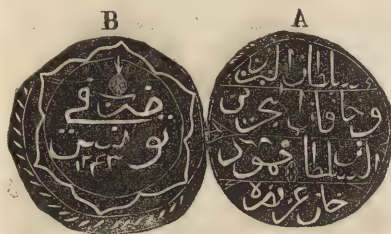 B
ضرب في
تونس
١٢٤٣
A
سلطان البرين
وخاقان البحرين
السلطان محمود
خان عز نصره